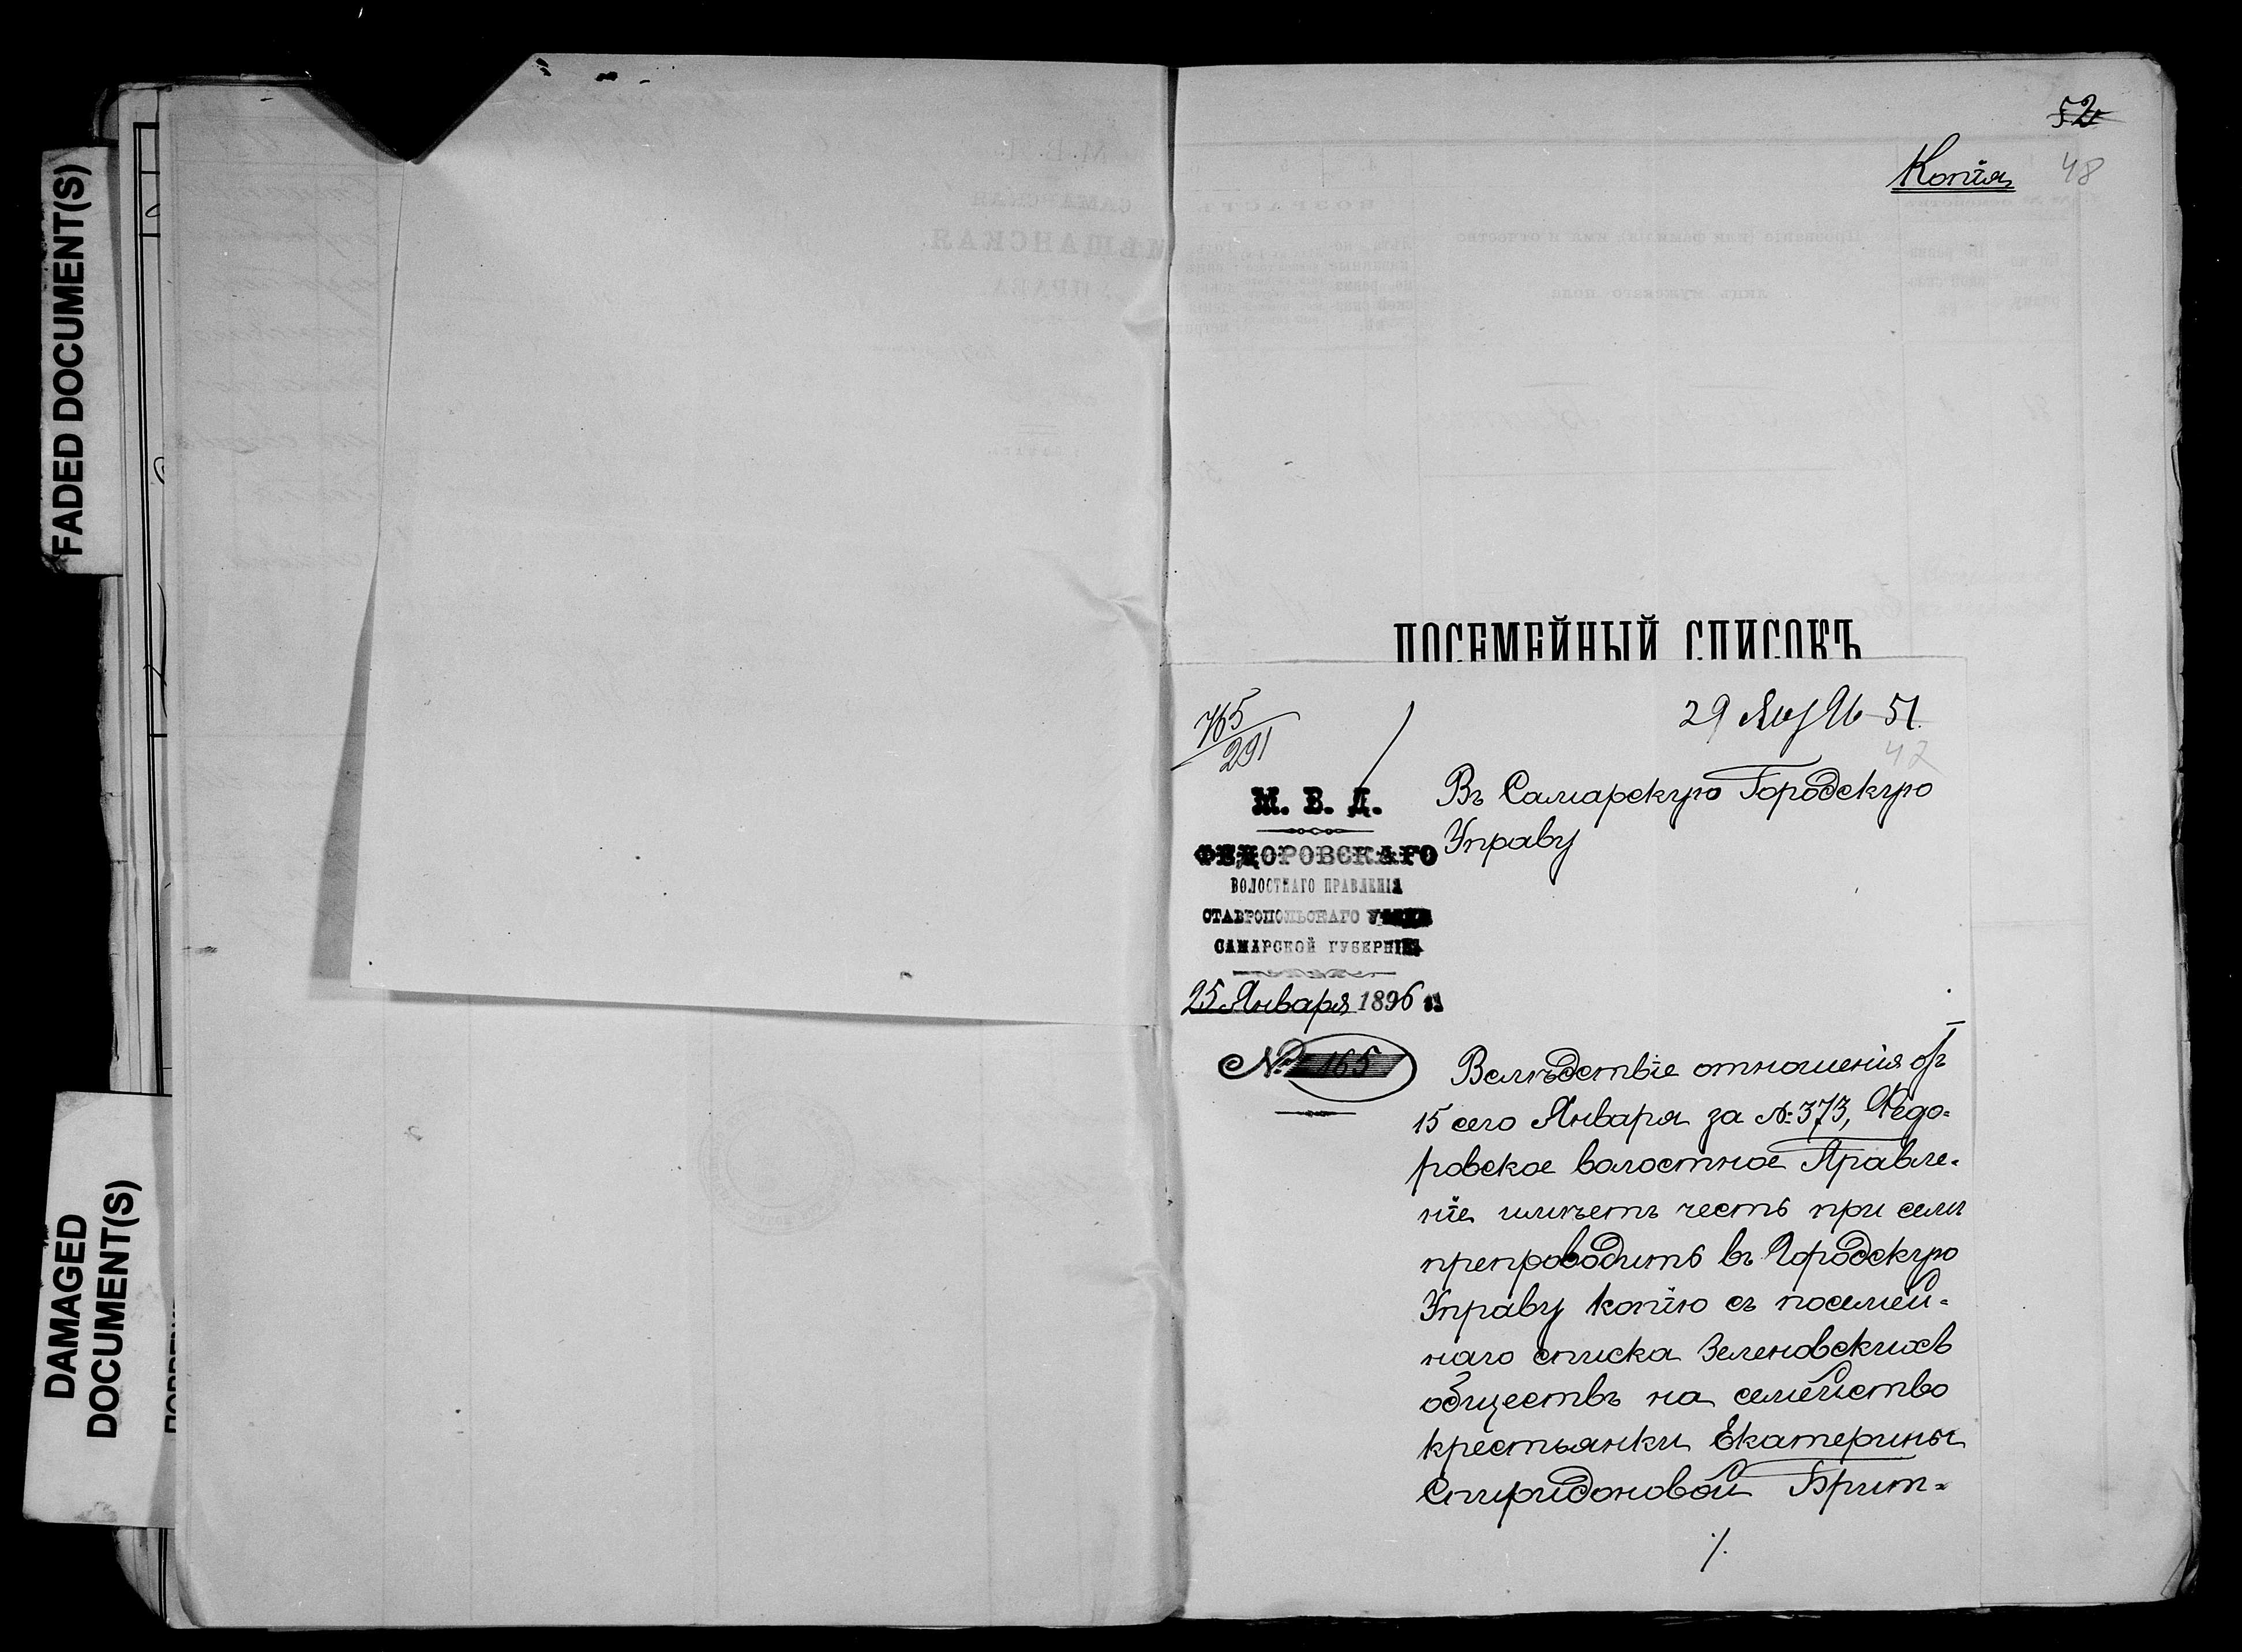 FADED DOCUMENT(S)
DAMAGED
DOCUMENT(S)
52
Копія
48
ПОСЕМЕЙНЫЙ СПИСОКЪ
765
291
29 Янв 96 51
47
М. В. Д.
ФЕДОРОВСКАГО
ВОЛОСТНАГО ПРАВЛЕНІЯ
СТАВРОПОЛЬСКАГО УѢЗДА
САМАРСКОЙ ГУБЕРНІИ
25 Января 1896
№ 165
Въ Самарскую Городскую
Управу
Вслѣдствіе отношенія отъ
15 сего Января за №373, Ѳедо-
ровское волостное Правле-
ніе имѣетъ честь при семъ
препроводить въ Городскую
Управу копію съ посемей-
наго списка Зеленовскихъ
обществъ на семейство
крестьянки Екатерины
Спиридоновой Брит-